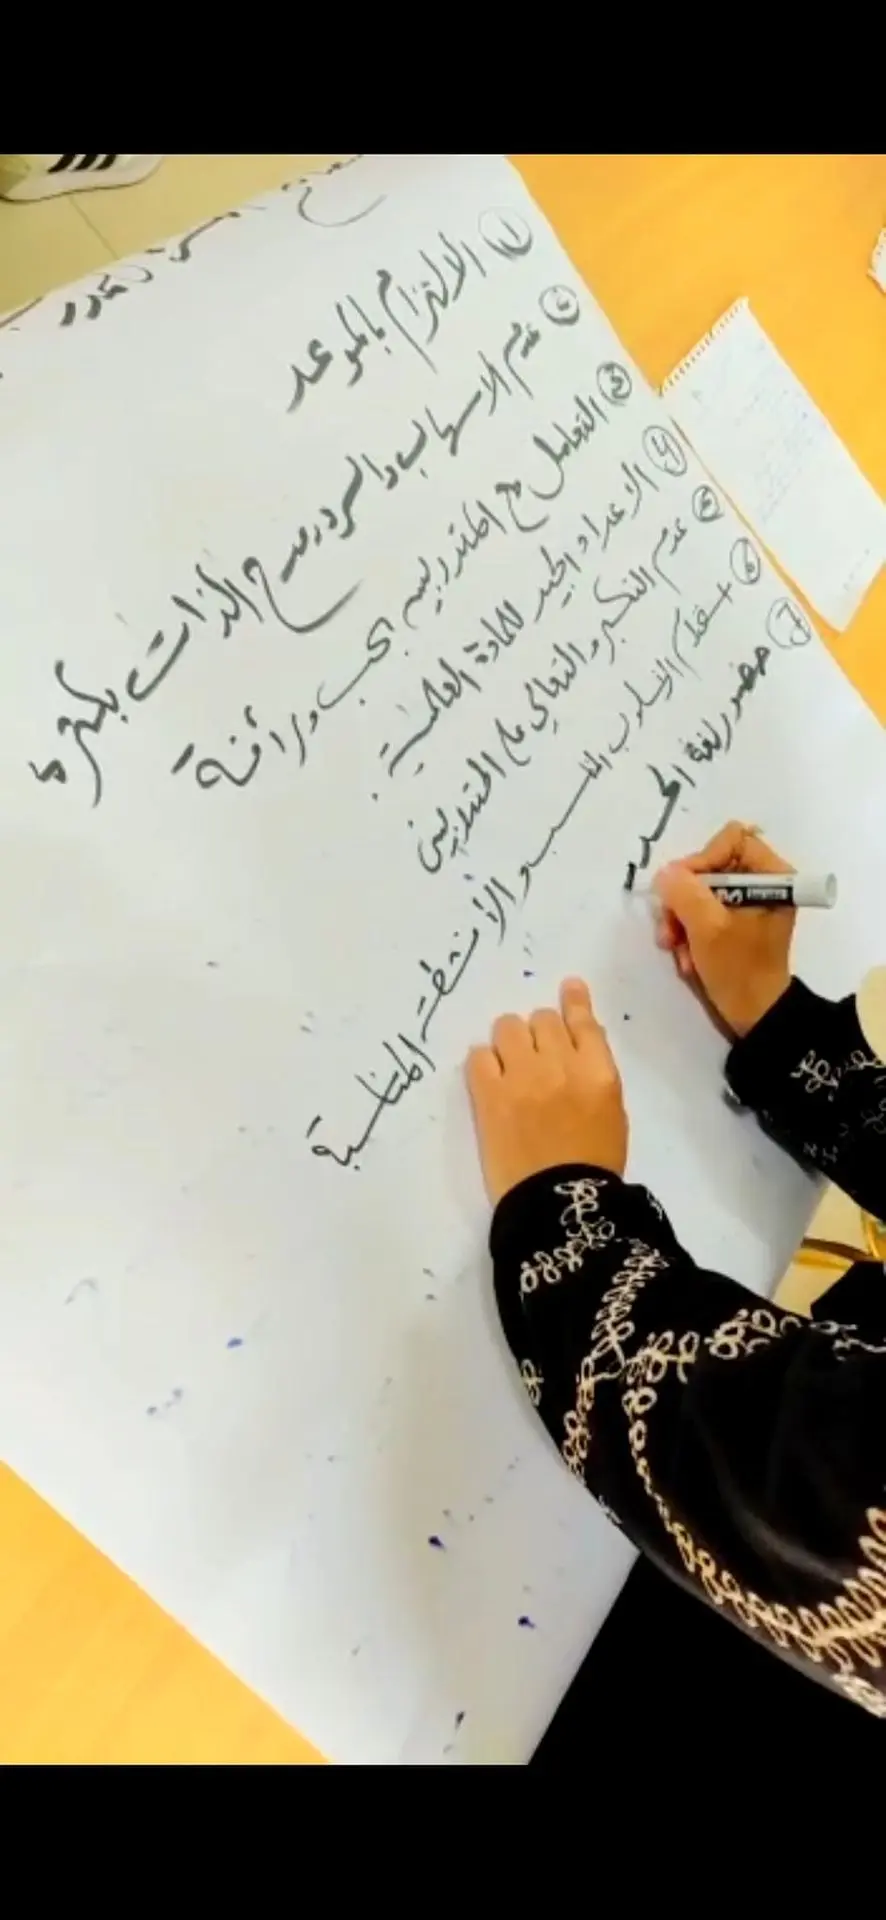 ① الالتزام بالموعد
② عدم الاسهاب والسرد ومدح الذات بكثرة
③ التعامل مع المتدربين بحب ورأفة
④ الاعداد الجيد للمادة العلمية.
⑤ عدم التكبر والتعالي على المتدربين
⑥ استخدام الاسلوب المناسب والأنشطة المناسبة
⑦ حضور لغة الجسد